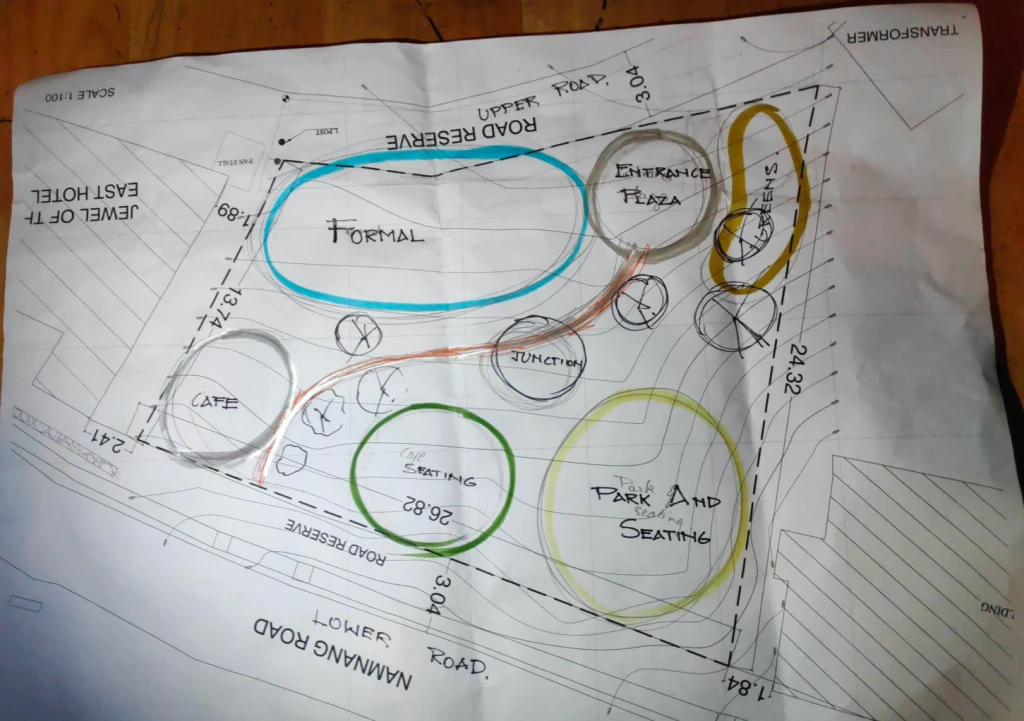 TRANSFORMER
SCALE 1:100
UPPER ROAD.
3.04
ROAD RESERVE
L.POST
PAN STALL
JEWEL OF TH
EAST HOTEL
1.89
13.74
FORMAL
ENTRANCE
PLAZA
GREENS
24.32
JUNCTION
CAFE
2.41
Cafe
SEATING
26.82
Park &
PARK AND
Seating
SEATING
ROAD RESERVE
3.04
LOWER
ROAD.
NAMNANG ROAD
1.84
LDING